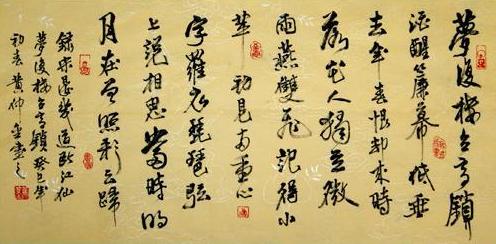 夢後樓台高鎖
酒醒簾幕低垂
去年春恨却來時
落花人獨立微
雨燕雙飛記得小
苹初見兩重心
字羅衣琵琶弦
上説相思當時明
月在曾照彩云歸
録宋晏幾道臨江仙
夢後樓台高鎖癸巳年
初春黄仲金